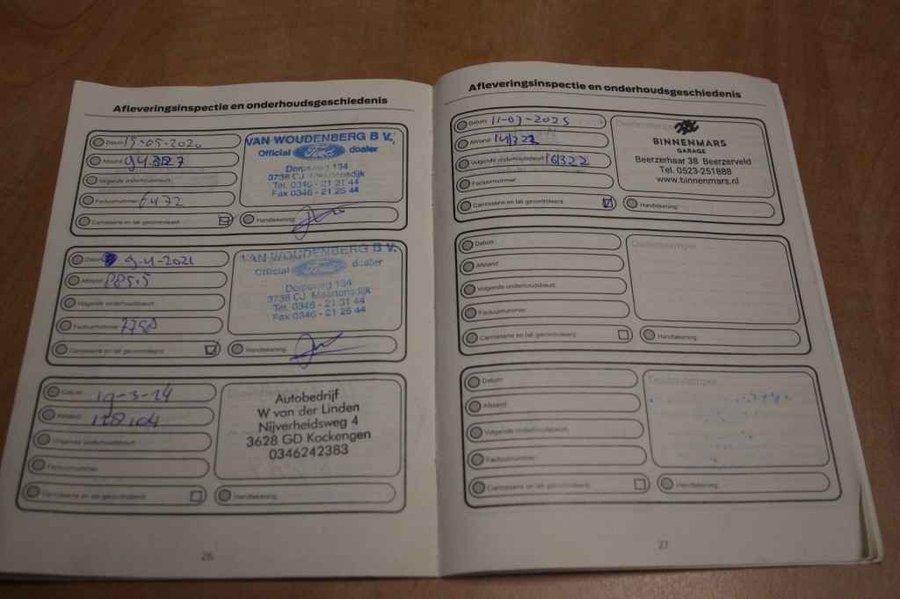 Afleveringsinspectie en onderhoudsgeschiedenis
Datum 15-05-2020
Afstand
Volgende onderhoudsbeurt
Factuurnummer 6472
Carrosserie en lak gecontroleerd
VAN WOUDENBERG B.V.
Official Ford dealer
Dorpsweg 134
3738 CJ Maartensdijk
Tel. 0346 - 21 31 44
Fax 0346 - 21 25 44
Handtekening
Datum 9-4-2021
Afstand
Volgende onderhoudsbeurt
Factuurnummer
Carrosserie en lak gecontroleerd
VAN WOUDENBERG B.V.
Official Ford dealer
Dorpsweg 134
3738 CJ Maartensdijk
Tel. 0346 - 21 31 44
Fax 0346 - 21 25 44
Handtekening
Datum 19-3-24
Afstand 128104
Volgende onderhoudsbeurt
Factuurnummer
Carrosserie en lak gecontroleerd
Autobedrijf
W van der Linden
Nijverheidsweg 4
3628 GD Kockengen
0346242383
Handtekening
26
Afleveringsinspectie en onderhoudsgeschiedenis
Datum 11-03-2025
Afstand 141322
Volgende onderhoudsbeurt 161322
Factuurnummer
Carrosserie en lak gecontroleerd
BINNENMARS
GARAGE
Beerzerhaar 38 Beerzerveld
Tel. 0523-251888
www.binnenmars.nl
Handtekening
Datum
Afstand
Volgende onderhoudsbeurt
Factuurnummer
Carrosserie en lak gecontroleerd
Dealerstempel
Handtekening
Datum
Afstand
Volgende onderhoudsbeurt
Factuurnummer
Carrosserie en lak gecontroleerd
Dealerstempel
Handtekening
27